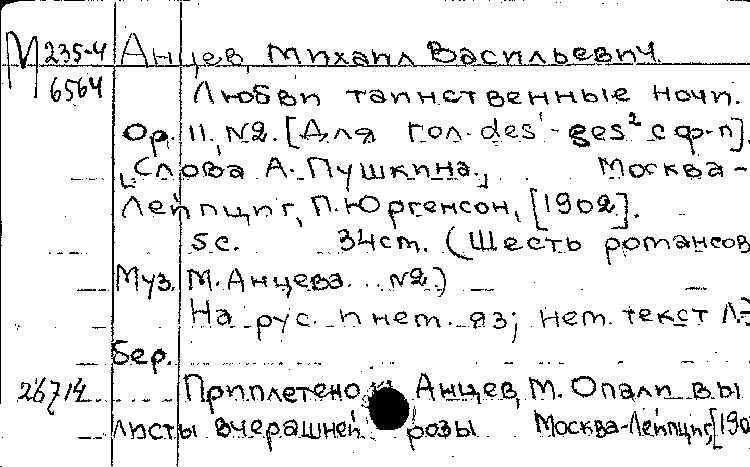 М 235-4 Анцев, Михаил Васильевич.
6564 Любви таинственные ночи.
Op. 11, №2. [Для гол. des¹-ges² с ф-п].
[Слова А. Пушкина.] Москва-
Лейпциг, П. Юргенсон, [1902].
5 с. 34 cm. (Шесть романсов
Муз. М. Анцева. №2.)
На рус. и нем. яз; нем. текст Л.
Бер.
26714 Приплетено к: Анцев, М. Опали вы
листы вчерашней розы Москва-Лейпциг, [190